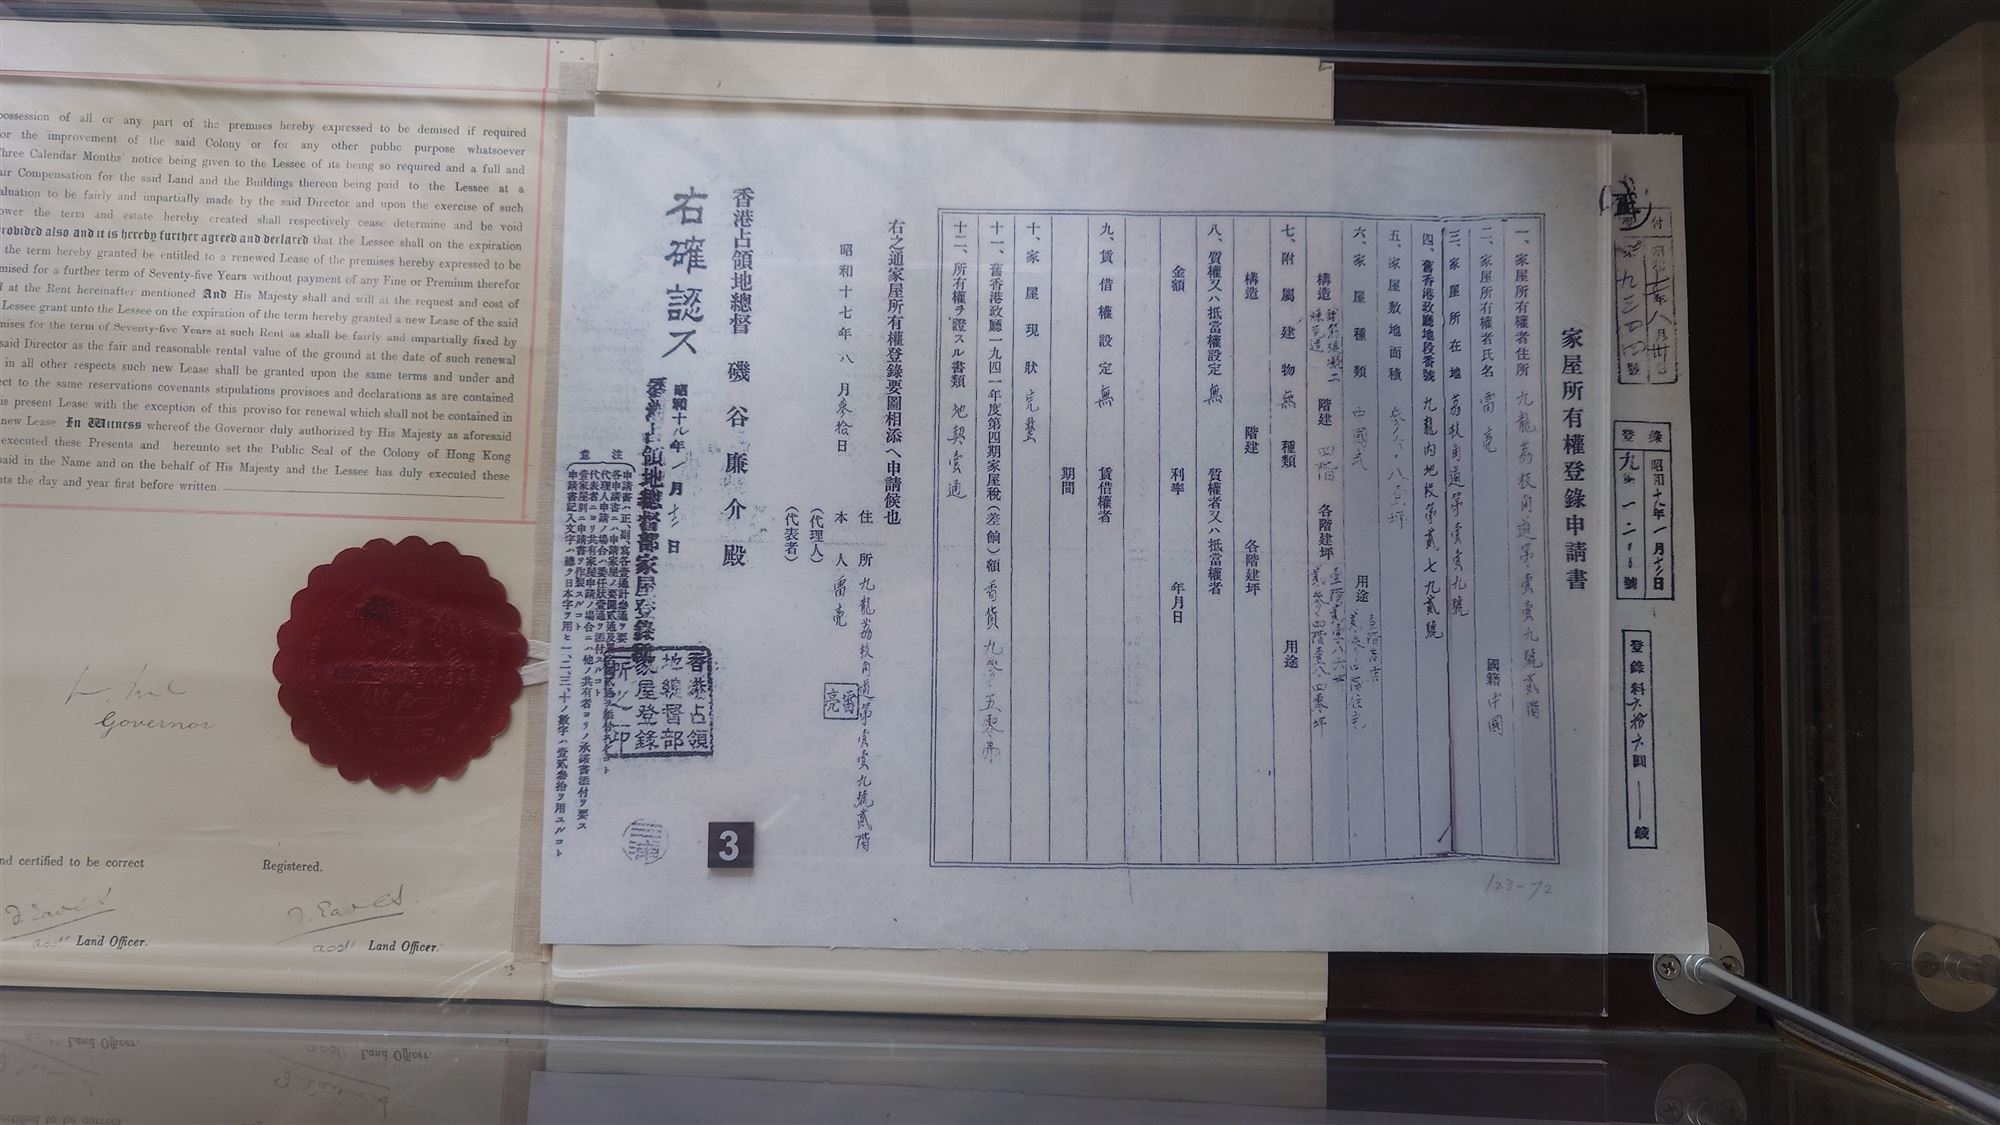 possession of all or any part of the premises hereby expressed to be demised if required
or the improvement of the said Colony or for any other public purpose whatsoever
Three Calendar Months' notice being given to the Lessee of its being so required and a full and
air Compensation for the said Land and the Buildings thereon being paid to the Lessee at a
aluation to be fairly and impartially made by the said Director and upon the exercise of such
ower the term and estate hereby created shall respectively cease determine and be void
rovided also and it is hereby further agreed and declared that the Lessee shall on the expiration
the term hereby granted be entitled to a renewed Lease of the premises hereby expressed to be
mised for a further term of Seventy-five Years without payment of any Fine or Premium therefor
d at the Rent hereinafter mentioned And His Majesty shall and will at the request and cost of
Lessee grant unto the Lessee on the expiration of the term hereby granted a new Lease of the said
mises for the term of Seventy-five Years at such Rent as shall be fairly and impartially fixed by
said Director as the fair and reasonable rental value of the ground at the date of such renewal
in all other respects such new Lease shall be granted upon the same terms and under and
ect to the same reservations covenants stipulations provisoes and declarations as are contained
is present Lease with the exception of this proviso for renewal which shall not be contained in
new Lease In Witness whereof the Governor duly authorized by His Majesty as aforesaid
executed these Presents and hereunto set the Public Seal of the Colony of Hong Kong
said in the Name and on the behalf of His Majesty and the Lessee has duly executed these
nts the day and year first before written.
Governor
nd certified to be correct
Registered.
Land Officer.
Land Officer.
登錄 昭和十八年一月十三日
登錄料六拾六圓——錢
家屋所有權登錄申請書
一、家屋所有權者住所 九龍荔枝角道第壹壹九號貳階
二、家屋所有權者氏名 雷亮 國籍 中國
三、家屋所在地 荔枝角道第壹壹九號
四、舊香港政廳地段番號 九龍內地段第貳七九貳號
五、家屋敷地面積
六、家屋種類 中國式 用途
構造 階建 四階 各階建坪
七、附屬建物 無 種類 用途
構造 階建 各階建坪
八、質權又ハ抵當權設定 無 質權者又ハ抵當權者
金額 利率 年月日
九、賃借權設定 無 賃借權者
期間
十、家屋現狀 完整
十一、舊香港政廳一九四一年度第四期家屋稅(差餉)額 香貨九零·五零弗
十二、所有權ヲ證スル書類 地契壹通
右之通家屋所有權登錄要圖相添ヘ申請候也
昭和十七年八月參拾日
住所 九龍荔枝角道第壹壹九號貳階
本人 雷亮
雷亮
(代理人)
(代表者)
香港占領地總督 磯谷廉介殿
右確認ス
昭和十八年一月十三日
香港占領地總督部家屋登錄所
香港占領地總督部家屋登錄所之印
注意
申請書ハ正、副、寫各壹通計叁通ヲ要ス
代理人申請ノ場合ハ委任狀壹通ヲ添付スルコト
壹家屋別ニ申請書ヲ作製スルコト
申請書記入文字ハ總テ日本字ヲ用ヒ一、二、三、十ノ數字ハ壹貳叁拾ヲ用ユルコト
3
123-72